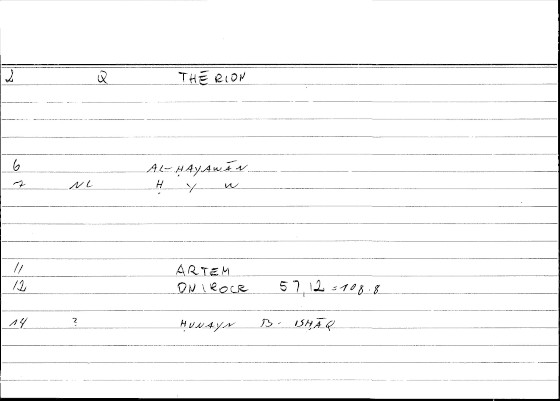 2 Q THERION
6 AL-ḤAYAWĀN
7 NL Ḥ Y W
11 ARTEM
12 ONIROCR 57,12 = 108.8
14 ? ḤUNAYN B. ISḤĀQ